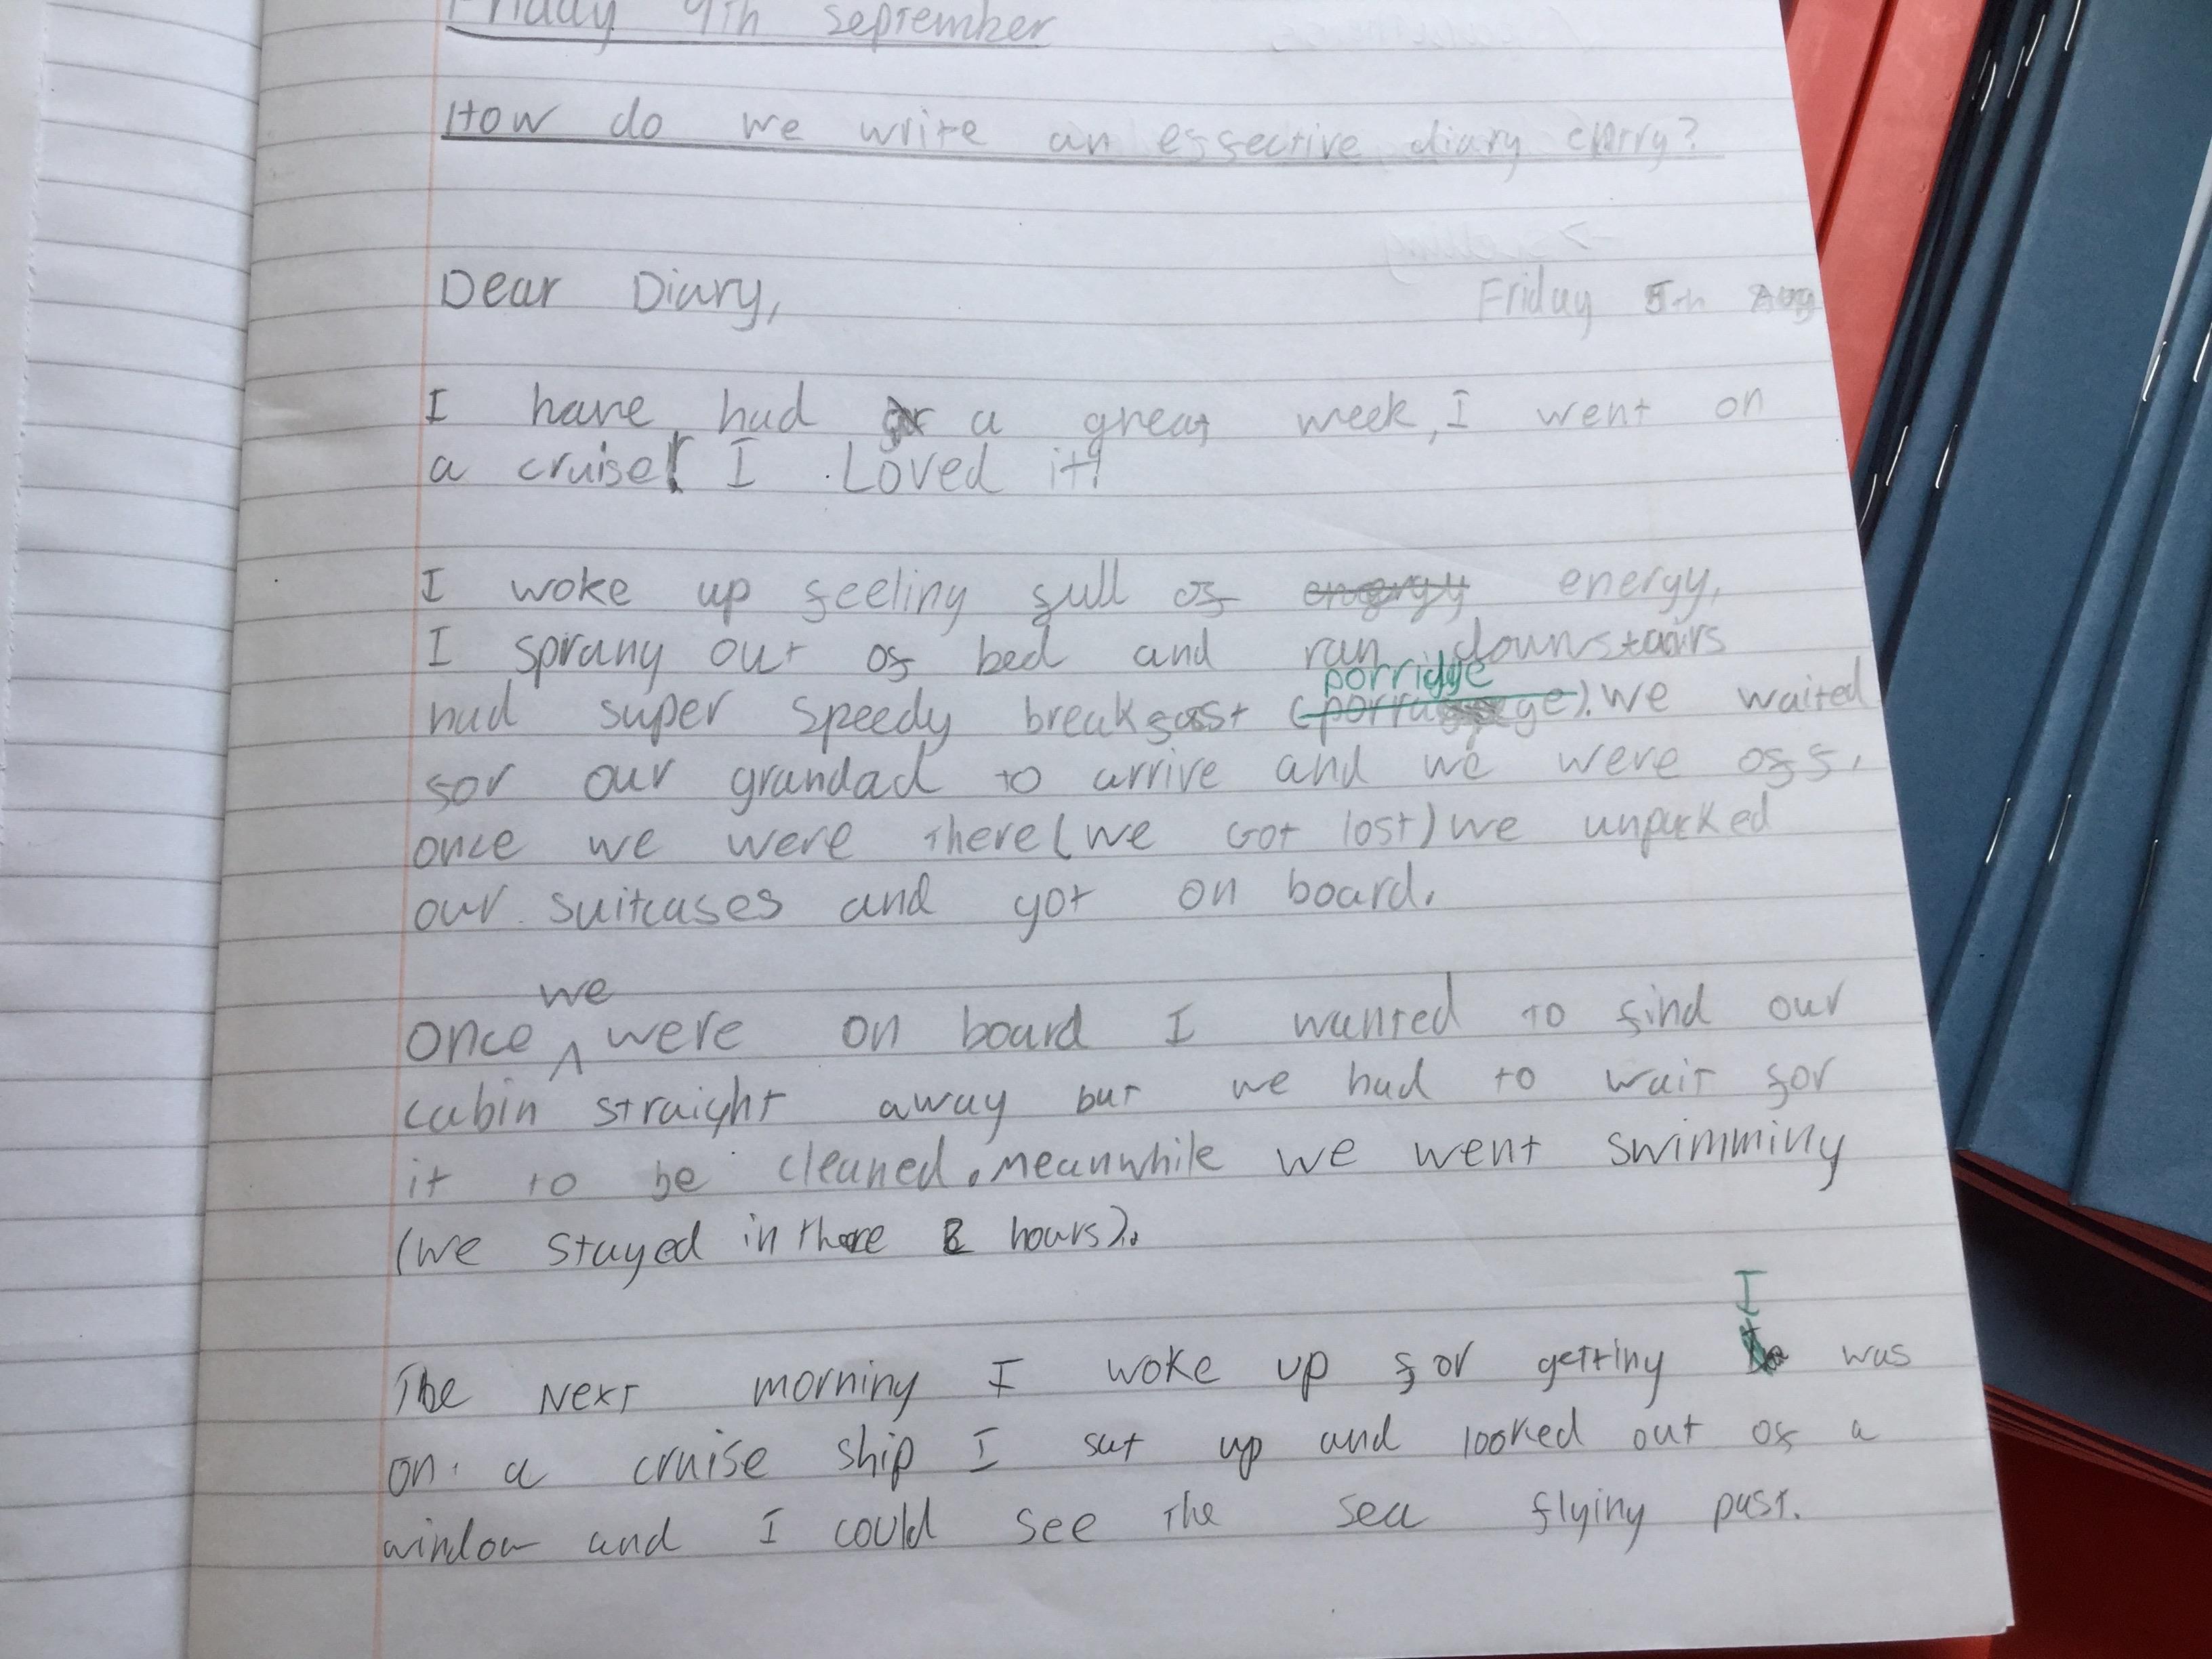 Friday 9th September
How do we write an effective diary entry?
Dear Diary, Friday 5th Aug
I have had a great week, I went on
a cruise! I Loved it!
I woke up feeling full of energy energy,
I sprang out of bed and ran downstairs
porridge
had super speedy breakfast ( ). we waited
for our grandad to arrive and we were off.
once we were there (we Got lost) we unpacked
our suitcases and got on board.
we
Once ^ were on board I wanted to find our
cabin straight away but we had to wait for
it to be cleaned. Meanwhile we went swimming
(we stayed in there hours).
I
The Next morning I woke up for getting was
on a cruise ship I sat up and looked out of a
window and I could see the sea flying past.